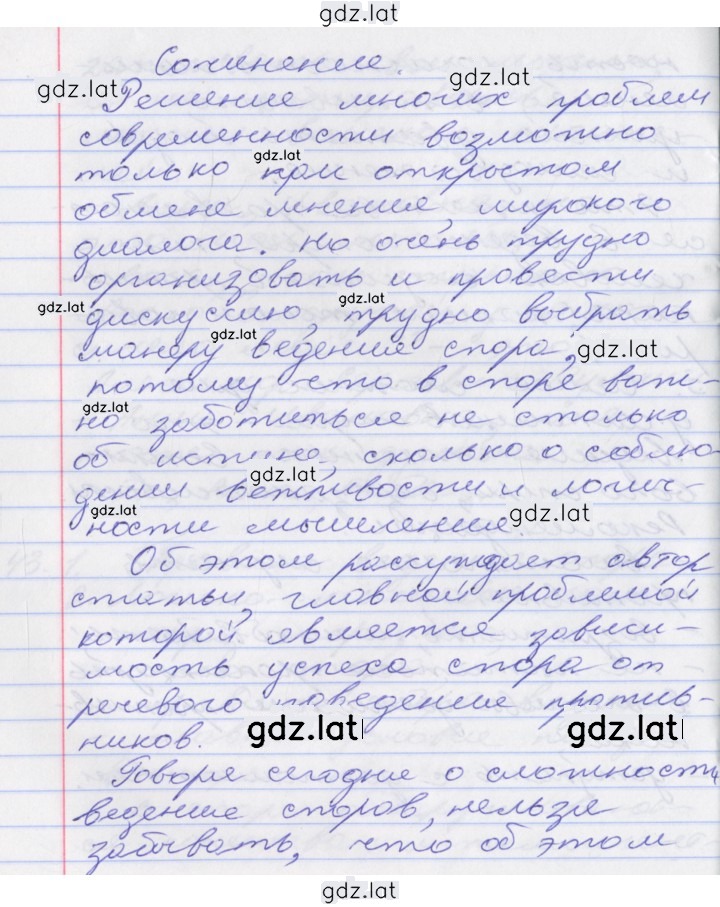 gdz.lat
Сочинение.
gdz.lat
gdz.lat
Решение многих проблем
современности возможно
gdz.lat
только при открытом
обмене мнения, широкого
диалога. Но очень трудно
организовать и провести
gdz.lat
gdz.lat
дискуссию, трудно выбрать
gdz.lat
манеру ведения спора,
gdz.lat
потому что в споре важ-
gdz.lat
но заботиться не столько
об истине, сколько о соблю-
gdz.lat
дении вежливости и логич-
gdz.lat
ности мышления.
Об этом рассуждает автор
статьи, главной проблемой
которой является зависи-
мость успеха спора от
речевого поведения против-
gdz.lat
gdz.lat
ников.
Говоря сегодня о сложности
ведения споров, нельзя
забывать, что об этом
gdz.lat